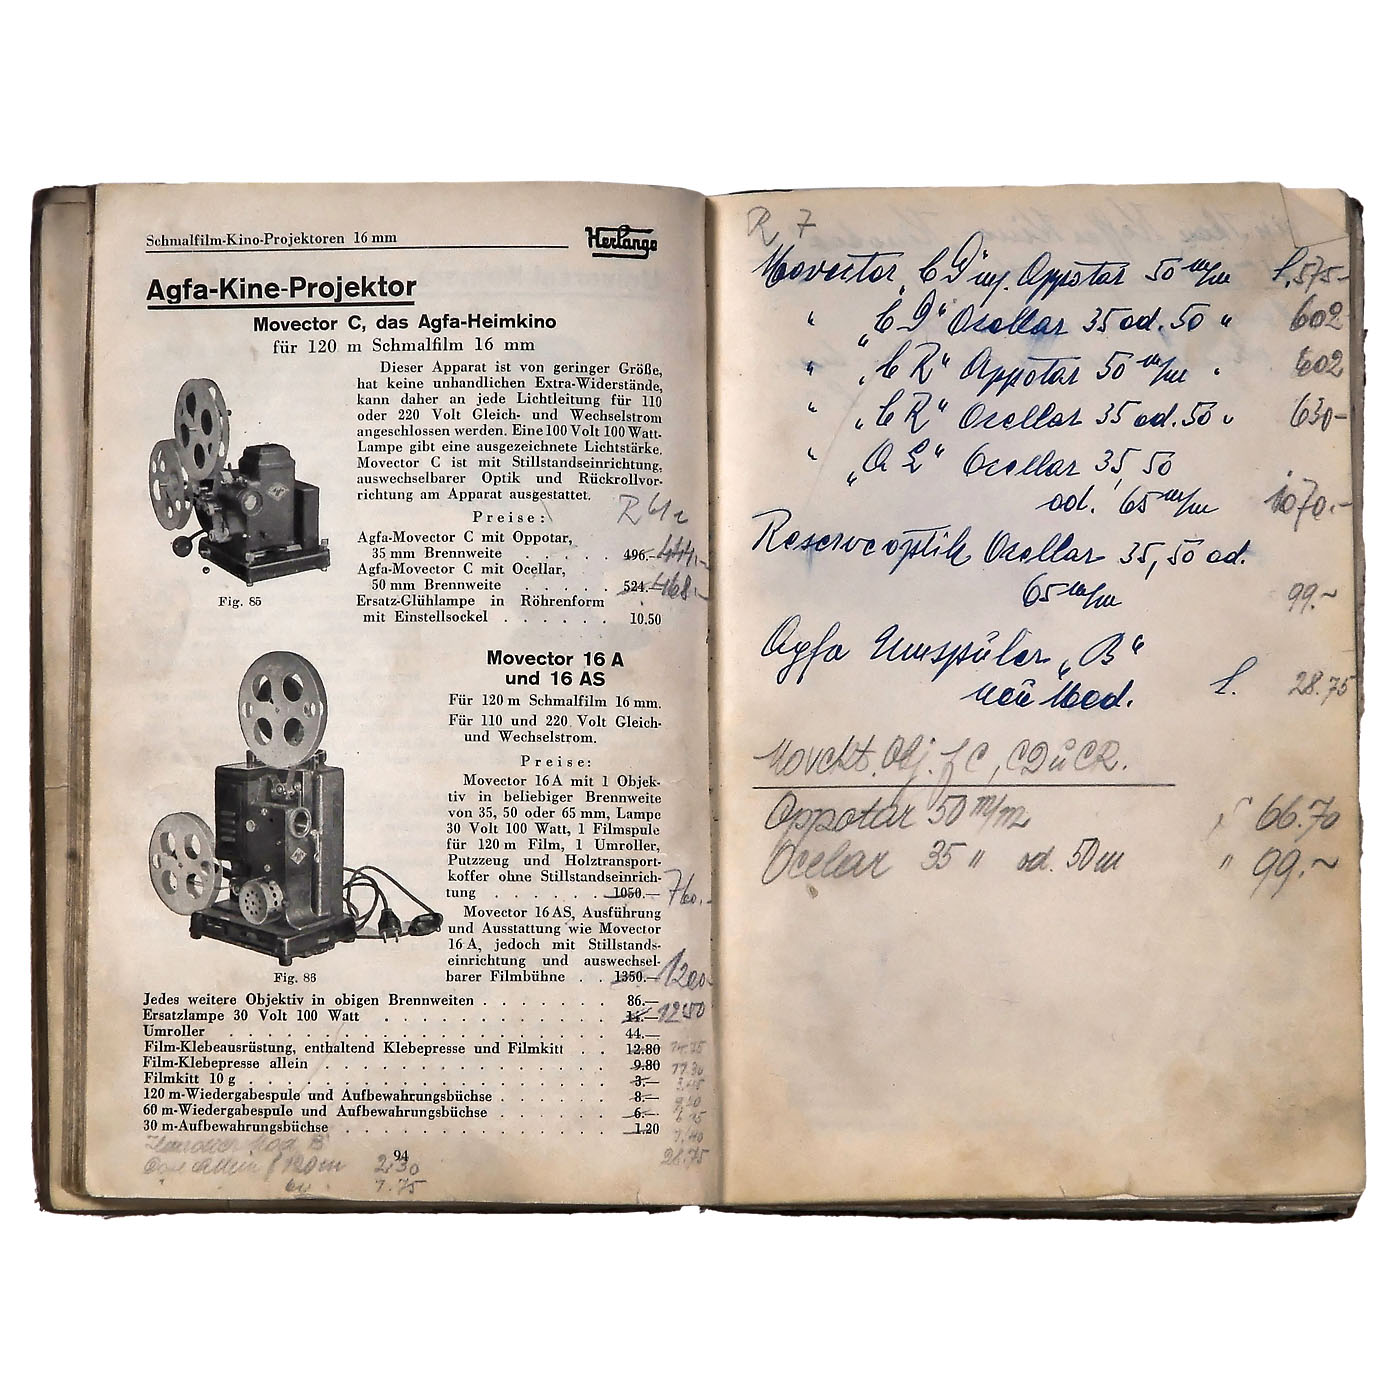 Schmalfilm-Kino-Projektoren 16 mm
Herlango
Agfa-Kine-Projektor
Movector C, das Agfa-Heimkino
für 120 m Schmalfilm 16 mm
Dieser Apparat ist von geringer Größe,
hat keine unhandlichen Extra-Widerstände,
kann daher an jede Lichtleitung für 110
oder 220 Volt Gleich- und Wechselstrom
angeschlossen werden. Eine 100 Volt 100 Watt-
Lampe gibt eine ausgezeichnete Lichtstärke.
Movector C ist mit Stillstandseinrichtung,
auswechselbarer Optik und Rückrollvor-
richtung am Apparat ausgestattet.
Preise:
Agfa-Movector C mit Oppotar,
35 mm Brennweite . . . . . 496.— 444.-
Agfa-Movector C mit Ocellar,
50 mm Brennweite . . . . . 524.— 468.-
Ersatz-Glühlampe in Röhrenform
mit Einstellsockel . . . . . . 10.50
Fig. 85
Movector 16 A
und 16 AS
Für 120 m Schmalfilm 16 mm.
Für 110 und 220 Volt Gleich-
und Wechselstrom.
Preise:
Movector 16 A mit 1 Objek-
tiv in beliebiger Brennweite
von 35, 50 oder 65 mm, Lampe
30 Volt 100 Watt, 1 Filmspule
für 120 m Film, 1 Umroller,
Putzzeug und Holztransport-
koffer ohne Stillstandseinrich-
tung . . . . . . . 1050.— 760.-
Movector 16 AS, Ausführung
und Ausstattung wie Movector
16 A, jedoch mit Stillstands-
einrichtung und auswechsel-
barer Filmbühne . . 1350.— 1200.-
Fig. 86
Jedes weitere Objektiv in obigen Brennweiten . . . . . . . 86.—
Ersatzlampe 30 Volt 100 Watt . . . . . . . . . . . 14.— 12.50
Umroller . . . . . . . . . . . . . . . . . . 44.—
Film-Klebeausrüstung, enthaltend Klebepresse und Filmkitt . . 12.80
Film-Klebepresse allein . . . . . . . . . . . . . . 9.80 11.30
Filmkitt 10 g . . . . . . . . . . . . . . . . . 3.— 3.45
120 m-Wiedergabespule und Aufbewahrungsbüchse . . . . . . 8.— 9.20
60 m-Wiedergabespule und Aufbewahrungsbüchse . . . . . . 6.—
30 m-Aufbewahrungsbüchse . . . . . . . . . . . . . 1.20 1.40
Mod. B 28.75
94
120 m 2.30
60 1.75
R 7
Movector „CD" m. Oppotar 50 m/m S. 575-
" „CD" Ocellar 35 od. 50 " 602
" „CR" Oppotar 50 m/m " 602
" „CR" Ocellar 35 od. 50 " 630-
" „AL" Ocellar 35, 50
od. 65 m/m 1070.-
Reserveoptik Ocellar 35, 50 od.
65 m/m 99.-
Agfa Umspuler „B"
neu Mod. S. 28.75
Movekt. Obj. f C, CD u CR.
Oppotar 50 m/m S 66.70
Ocelar 35 " od. 50 m " 99.-